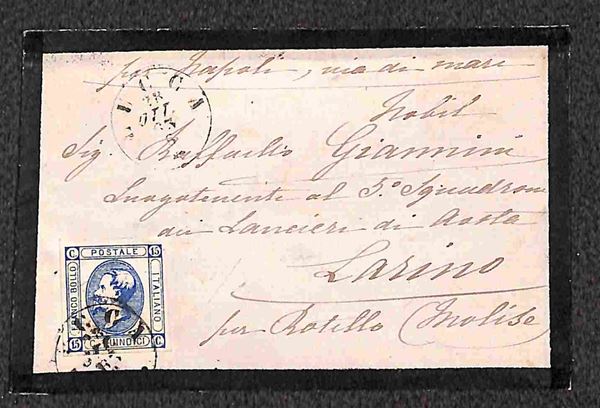 per Napoli, via di mare
LUCCA
28
OTT
63
Nobil
Sig. Raffaello Giannini
Luogotenente al 5º Squadrone
dei Lancieri di Aosta
Larino
per Rotello (Molise)
C. POSTALE 15
FRANCO BOLLO
ITALIANO
15 C. QUINDICI C